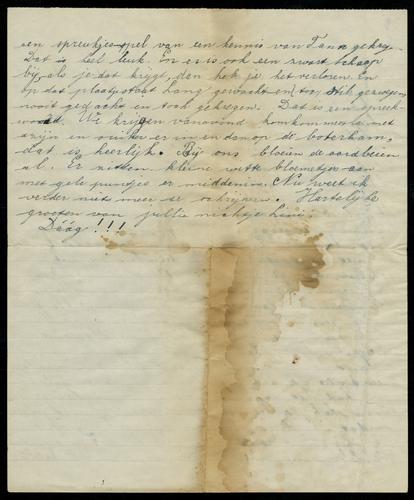 een spreukjespel van een kennis van Tans gekregen.
Dat is heel leuk. En er is ook een zwart schaap
bij, als je dat krijgt, dan heb je het verloren. En
op dat plaatje staat Lang gewacht en
nooit gedacht en toch gekregen. Dat is een spreek-
woord. We krijgen vanavond komkommersla met
azijn en suiker er in en dan op de boterham,
dat is heerlijk. Bij ons bloeien de aardbeien
al. Er zitten kleine witte bloemetjes aan
met gele puntjes er middenin. Nu weet ik
verder niets meer te schrijven. Hartelijke
groeten van jullie nichtje Leni.
Dáág!!!